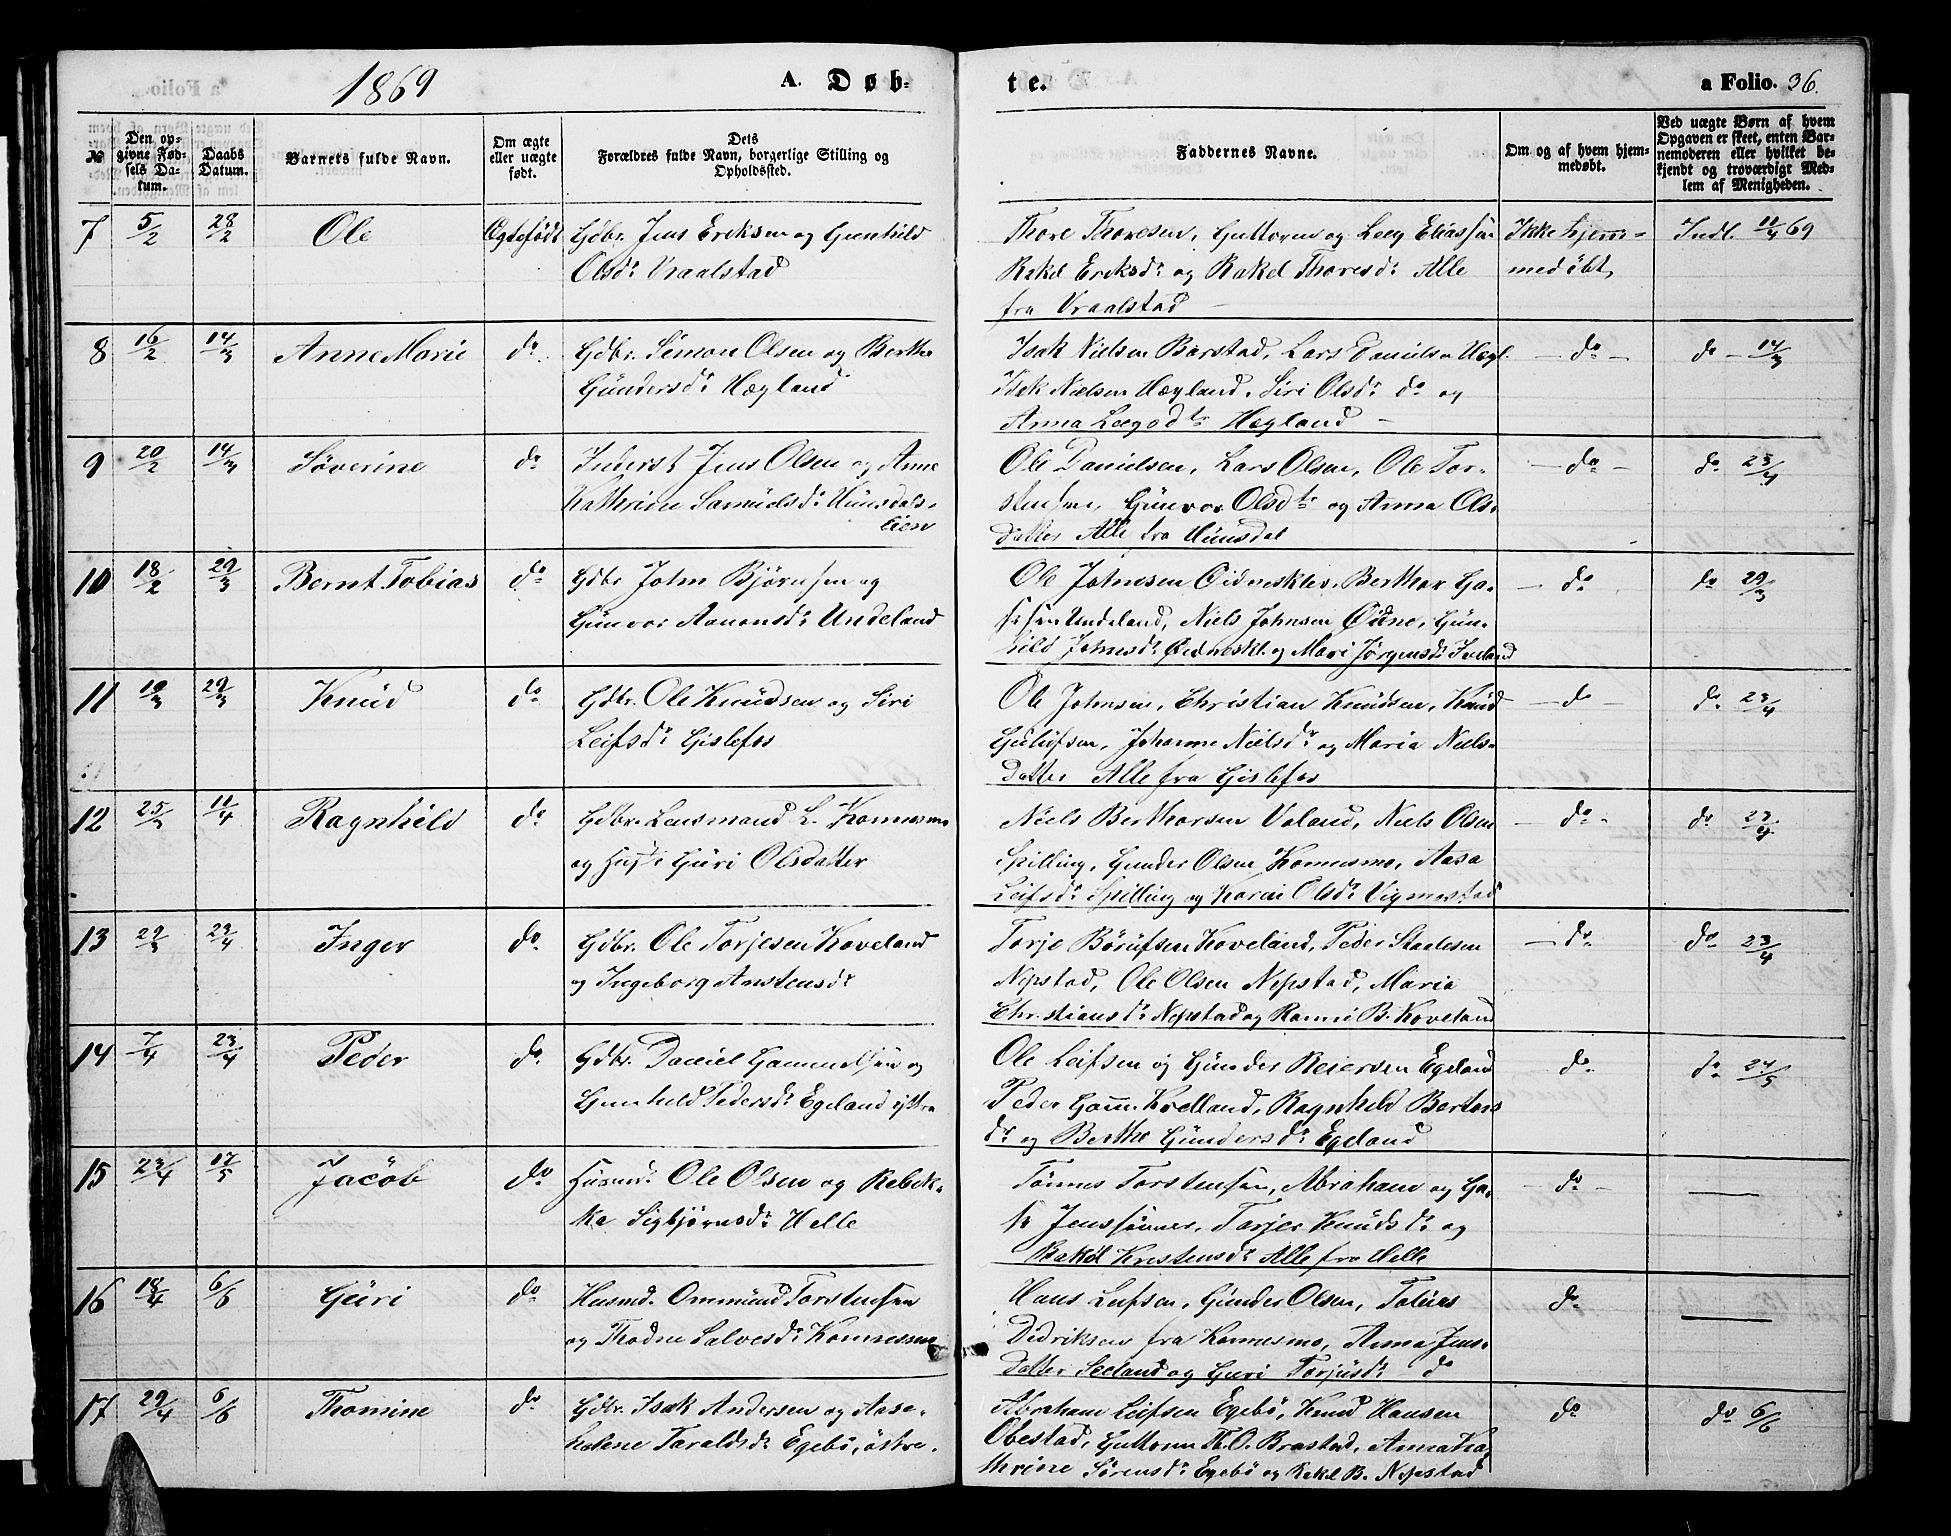 1869 A. Døb-
te. a Folio. 36.
№ Den opgivne Fødsels Datum. Daabs Datum. Barnets fulde Navn. Om ægte eller uægte født. Dets Forældres fulde Navn, borgerlige Stilling og Opholdssted. Faddernes Navne. Om og af hvem hjemmedøbt. Ved uægte Børn af hvem Opgaven er skeet, enten Barnemoderen eller hvilket bekjendt og troværdigt Medlem af Menigheden.
7 5/2 28/2 Ole Ægtefödt Gdbr. Jens Eriksen og Gunhild
Olsdr Vraalstad
Thore Thoresen, Guttorm og Leeg Eliassen
Rakel Eriksdr og Rakel Thoresdr Alle
fra Vraalstad –
Ikke hjem-
medöbt,
Indl. 11/4 69
8 16/2 14/3 Anne Marie do Gdbr. Simon Olsen og Berthe
Gundersdr Hægland
Isak Nielsen Barstad, Lars Danielsen Hægl.
Isak Nielsen Hægland, Siri Olsdr do og
Anna Leegsdtr Hægland –
– do – do – 14/3
9 20/2 14/3 Söverine do Inderst Jens Olsen og Anne
Kathrine Samuelsdr Hunsdals-
lien
Ole Danielsen, Lars Olsen, Ole Tor-
stensen, Gunvor Olsdtr og Anna Ols-
datter Alle fra Hunsdal
– do – do 23/4
10 18/2 29/3 Bernt Tobias do Gdbr John Björnsen og
Gunvor Aanonsdr Undeland
Ole Johnsen Öidnesklev, Berthor Ga-
sesen Undeland, Niels Johnsen Öidne, Gun-
hild Johnsdr Öidneskl. og Mari Jörgensdr Iveland
– do do 29/3
11 19/3 29/3 Knud do Gdbr. Ole Knudsen og Siri
Leifsdr Gislefos
Ole Johnsen, Christian Knudsen, Knud
Gulufsen, Johanne Nielsdr og Maria Niels-
datter Alle fra Gislefos
– do – do 23/4
12 25/3 11/4 Ragnhild do Gdbr. Lensmand L. Konnesmo
og Hust. Guri Olsdatter
Niels Berthorsen Valand, Niels Olsen
Spilling, Gunder Olsen Konnesmo, Aasa
Leifsdr Spilling og Karen Olsdr Vigmostad
– do – do 23/4
13 29/3 23/4 Inger do Gdbr. Ole Torjesen Koveland
og Ingeborg Anstensdr
Torje Börufsen Koveland, Peder Staalesen
Nepstad, Ole Olsen Nepstad, Maria
Christiansdr Nepstad og Ranni B. Koveland
– do do 23/4
14 7/4 23/4 Peder do Gdbr. Daniel Gammelsen og
Gunhild Pedersdr Egeland östre
Ole Leifsen og Gunder Reiersen Egeland
Peder Gam. Kvelland, Ragnhild Bertors
dr og Berthe Gundersdr Egeland
do do 24/5
15 23/4 17/5 Jacob do Husmd. Ole Olsen og Rebek-
ka Sigbjörnsdr Helle
Tönnes Torstensen, Abraham og Ga-
se Jenssönner, Torjer Knudsdr og
Rakel Kristensdr Alle fra Helle
– do –
16 18/4 6/6 Guri do Husmd. Ommund Torstensen
og Thodne Salvesdr Konnesmo
Hans Leifsen, Gunder Olsen, Tobias
Didriksen fra Konnesmo, Anna Jens-
datter Seeland og Guri Torjusdr do
do
17 29/4 6/6 Thomine do Gdbr. Isak Andersen og Aase
Helene Taraldsdr Egebö, östre.
Abraham Leifsen Egebö, Knud Hansen
Obestad, Guttorm Th. O. Brastad, Anna Ka-
thrine Sörensdr Egebö og Rakel B. Nepstad
do do 6/6